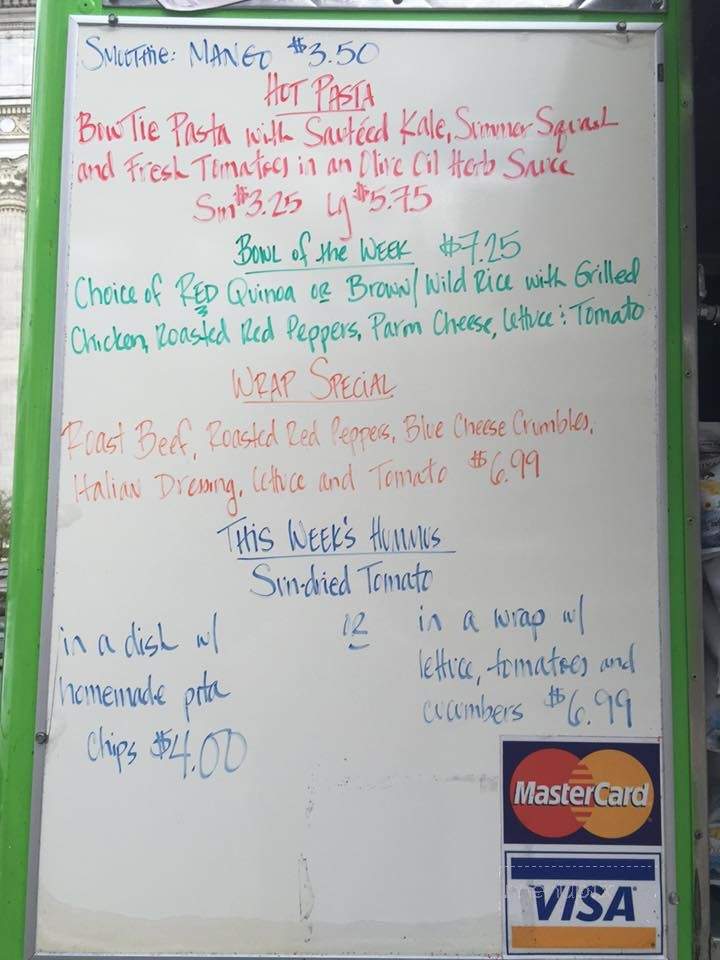 Smoothie: Mango $3.50
Hot Pasta
Bow Tie Pasta with Sautéed Kale, Summer Squash
and Fresh Tomatoes in an Olive Oil Herb Sauce
Sm $3.25 Lg $5.75
Bowl of the Week $7.25
Choice of RED Quinoa or Brown/Wild Rice with Grilled
Chicken, Roasted Red Peppers, Parm Cheese, Lettuce & Tomato
Wrap Special
Roast Beef, Roasted Red Peppers, Blue Cheese Crumbles,
Italian Dressing, Lettuce and Tomato $6.99
This Week's Hummus
Sun-dried Tomato
in a dish w/
homemade pita
chips $4.00
or
in a wrap w/
lettuce, tomatoes and
cucumbers $6.99
MasterCard
VISA